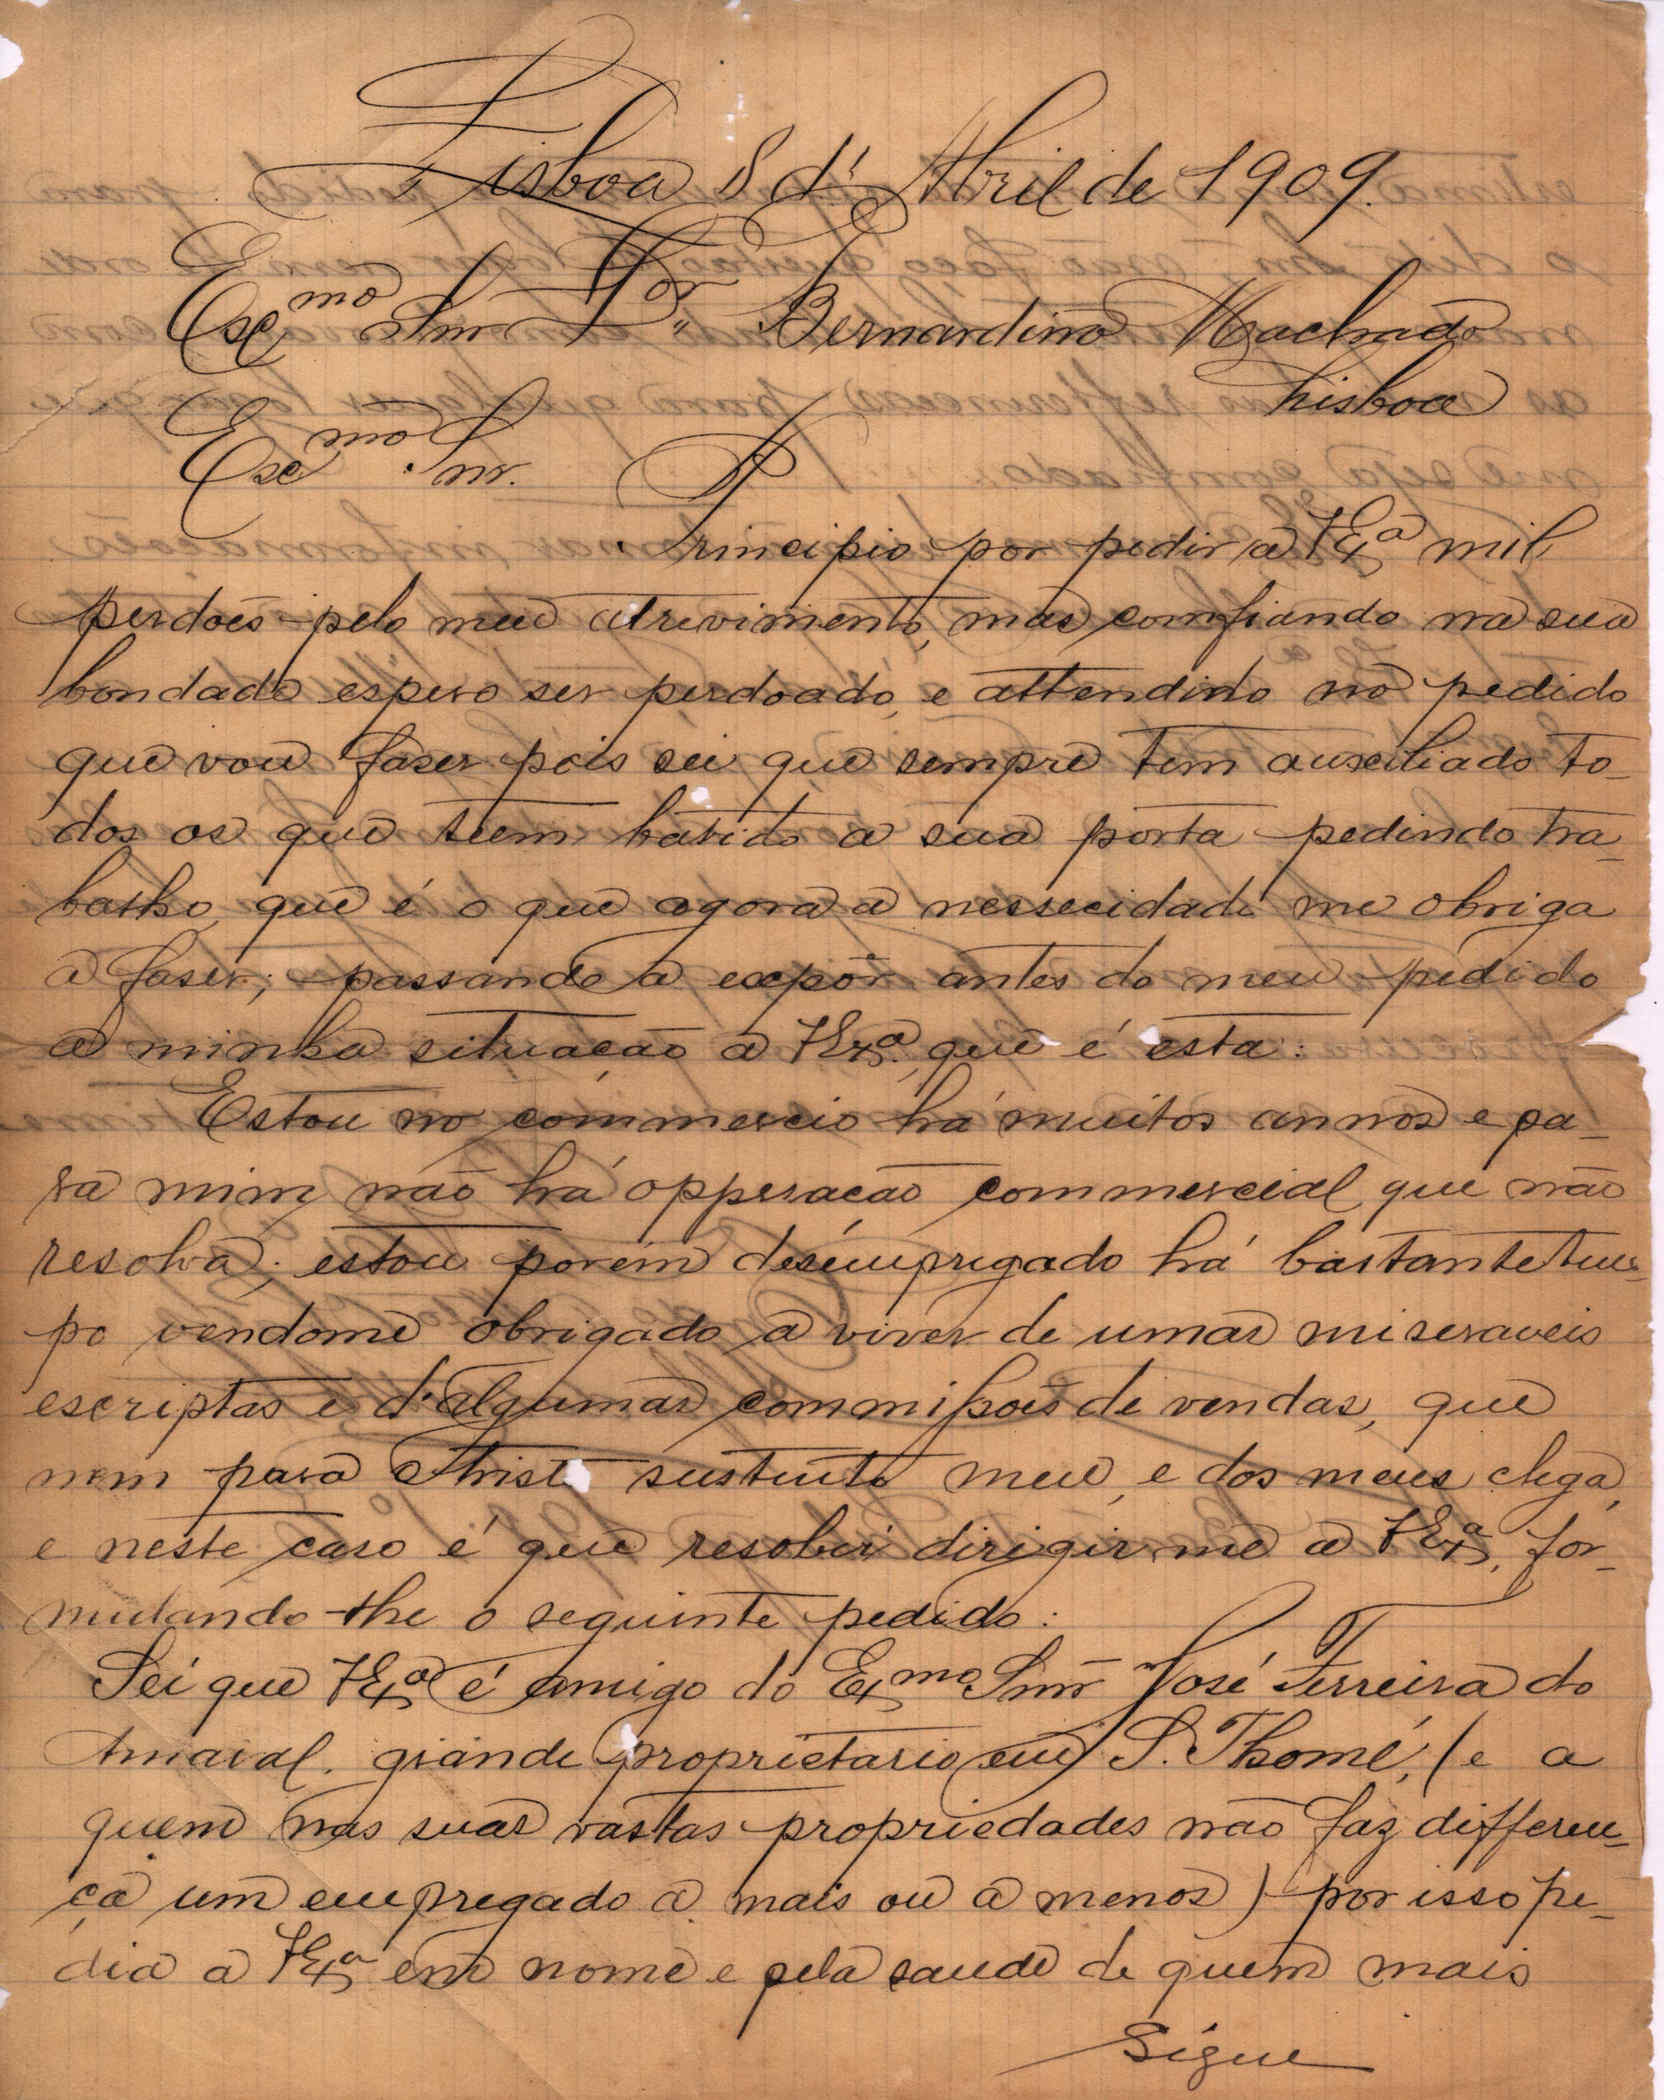 Lisboa 8 d'Abril de 1909.
Exc.mo Snr. Dor. Bernardino Machado
Lisboa
Exc.mo Snr.
Principio por pedir a V Exa mil
perdões pelo meu atrevimento, mas comfiando na sua
bondade espero ser perdoado, e attendido no pedido
que vou faser pois sei que sempre tem auxiliado to-
dos os que teem batido a sua porta pedindo tra-
balho, que é o que agora a nessecidade me obriga
a faser; passando a expôr antes do meu pedido
a minha situação a V Exa. que é esta:
Estou no commercio há muitos annos e pa-
ra mim não há opperacão commercial que não
resolva; estou porém desémpregado há bastante tem-
po vendome obrigado a viver de umas miseraveis
escriptas e d'algumas commissões de vendas, que
nem para o triste sustento meu, e dos meus chega,
e neste caso é que resolvi dirigir me a V Exa, for-
mulando-lhe o seguinte pedido:
Sei que V Exa é amigo do Exmo Snr José Ferreira do
Amaral, grande proprietario em S. Thomé, (e a
quem nas suas vastas propriedades não faz differen-
ça um empregado a mais ou a menos) por isso pe-
dia a V Exa em nome e pela saude de quem mais
Sigue